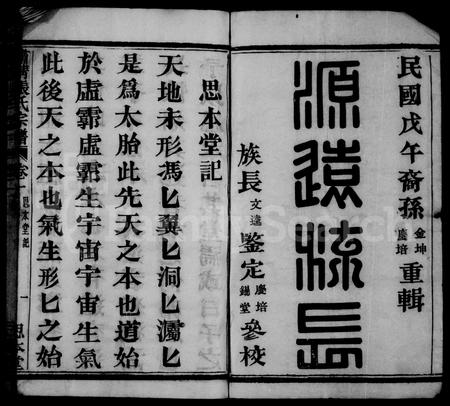 民國戊午裔孫金坤慶培重輯
源遠流長
族長文達鑒定慶培錫堂參校
思本堂記
天地未形馮匕翼匕洞匕灟匕
是爲太胎此先天之本也道始
於虛霩虛霩生宇宙宇宙生氣
此後天之本也氣生形匕之始
張氏宗譜
卷一
思本堂記
一
思本堂
FamilySearch